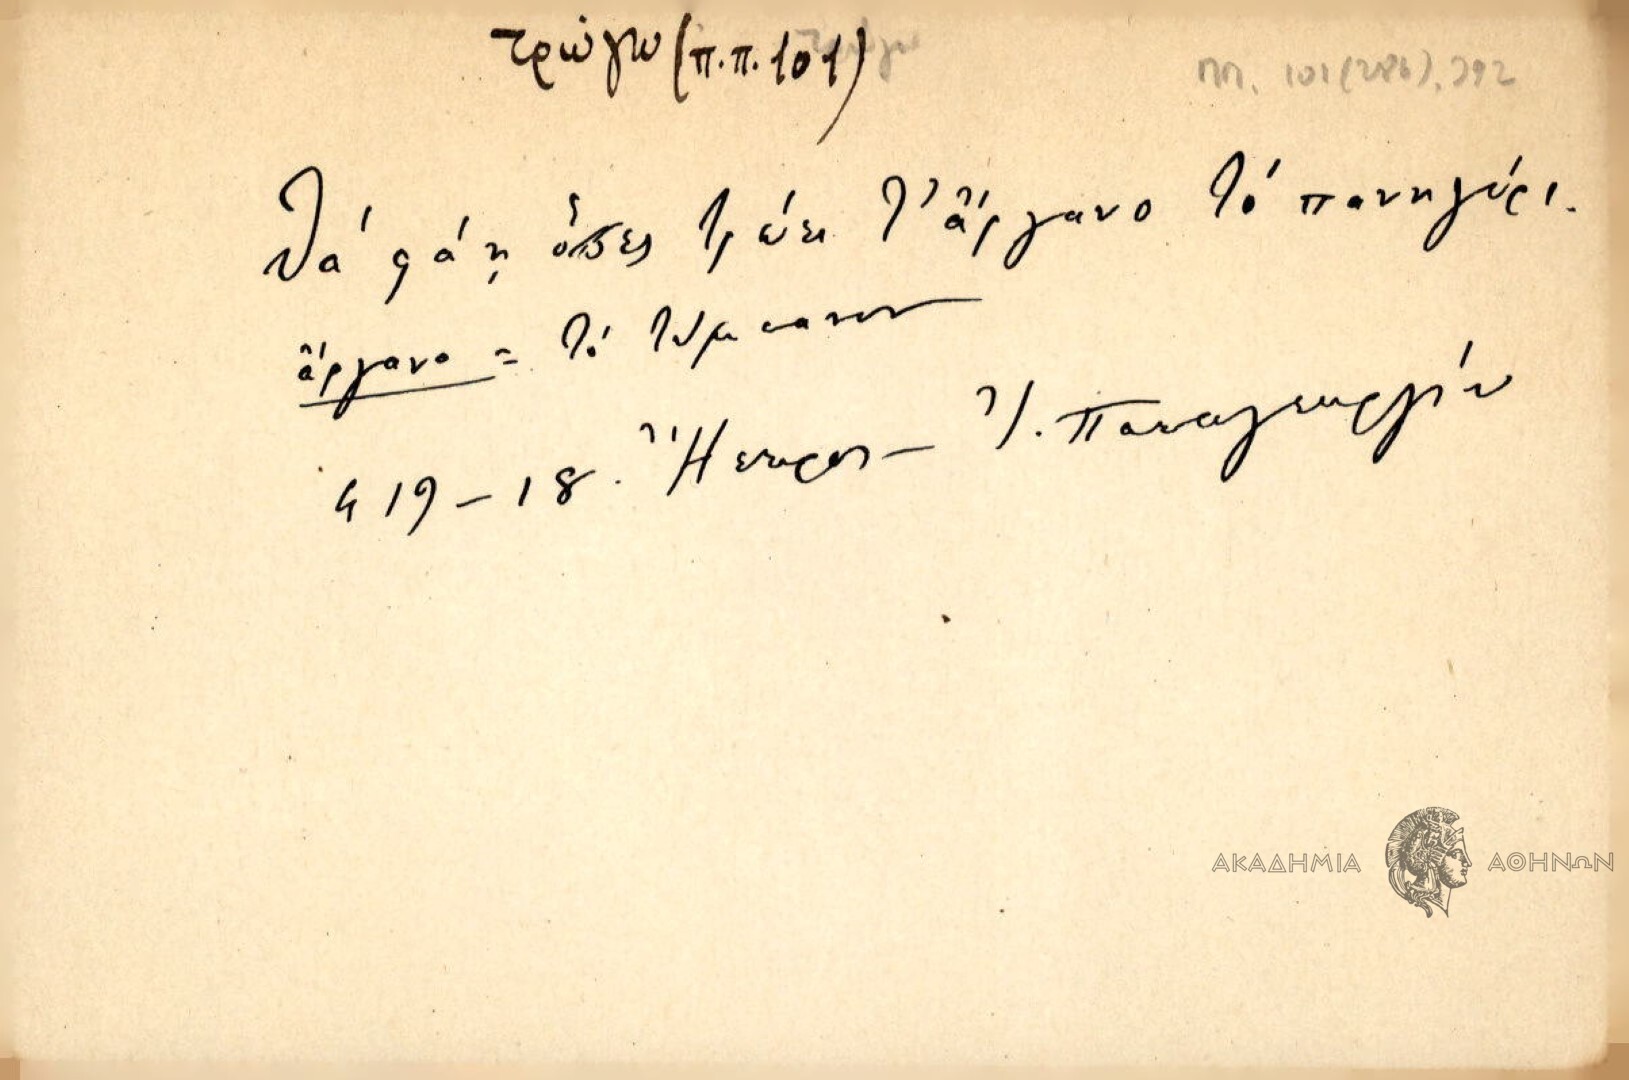 τρώγω (π.π. 101)
ππ. 101 (286), 392
Νά φάῃ ὅσες τρώει τ' ἄργανο τό πανηγύρι.
ἄργανο = τό τύμπανον
419-18. Ἤπειρος - Ἰ. Παπαγεωργίου
ΑΚΑΔΗΜΙΑ ΑΘΗΝΩΝ